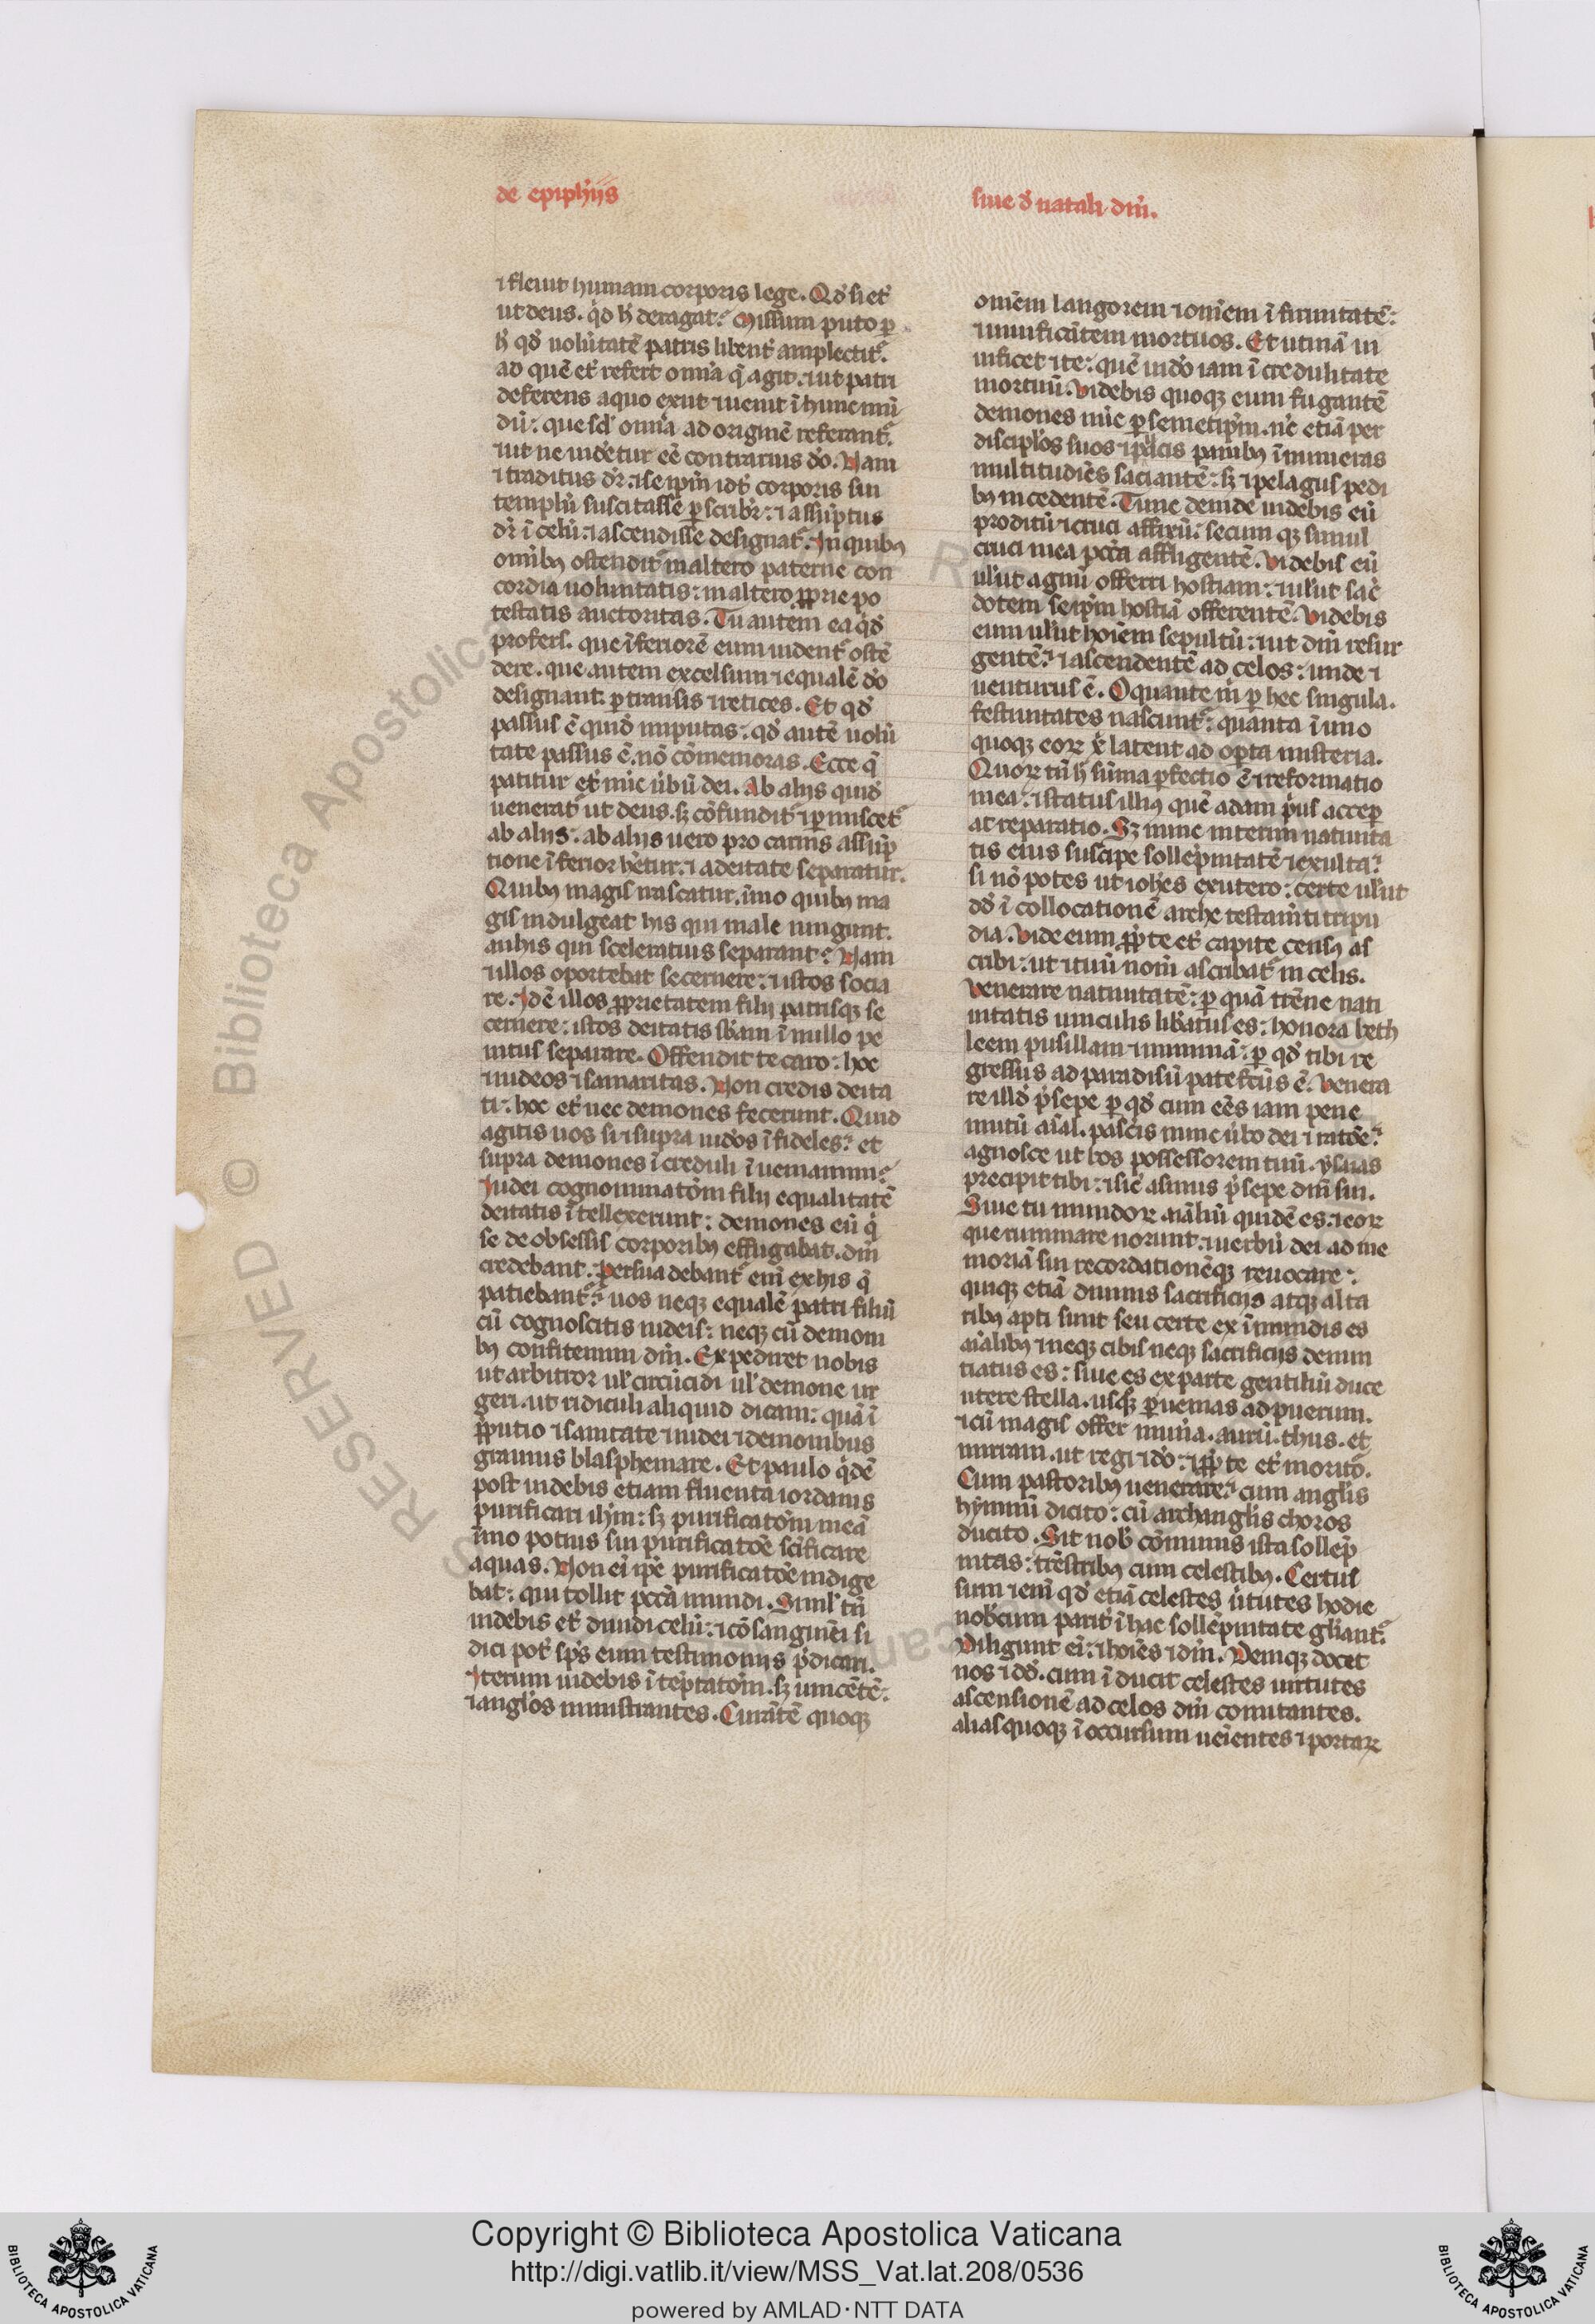 de epiphijs
siue đ natali dnī.
⁊ fleuit humani corporis lege. Qđ si et̾
ut deus. qd̾ h̾ deragat? Missum puto ꝑ
h̾ qđ uolūtatē patris libent̾ amplectit̾.
ad quē et̾ refert omīa q̄ agit. ⁊ ut patri
deferens a quo exiit ⁊ uenit ī hunc mū
dū: que scł̾ omīa ad originē referant̾.
⁊ ut ne uidetur eē contrarius dō. Nam
⁊ traditus dr̄: ⁊ se ipm̄ corporis sui
templū suscitasse ꝑscribr̾: ⁊ assūptus
dr̄ ī celū: ⁊ ascendisse designat̾. In quibȝ
omībȝ ostendit̾ in altero paterne con
cordia uoluntatis: in altero ꝓprie po
testatis auctoritas. Tu autem ea qđ
profers. que īferiorē eum uident̾ ostē
dere. que autem excelsum ⁊ equalē dō
designant: ꝑtransis ⁊ retices. Et qđ
passus ē quid imputas: qđ autē uolū
tate passus ē. nō cōmemoras. Ecce q̄
patitur et̾ nūc ūbū dei. Ab alijs quid̾
uenerat̾ ut deus. sȝ cōfundit̾ ⁊ ꝑmiscet̾
ab alijs: ab alijs uero pro carnis assūp
tione īferior hētur: ⁊ a deitate separatur.
Quibȝ magis nascatur. īmo quibȝ ma
gis indulgeat his qui male iungunt.
an his qui sceleratius separant? Nam
⁊ illos oportebat secernere: ⁊ istos socia
re. Idē illos ꝓprietatem filij patrisqȝ se
cernere: istos deitatis sb̄am ī nullo pe
nitus separare. Offendit te caro: hoc
⁊ iudeos ⁊ samaritas. Non credis deita
ti: hoc et̾ nec demones fecerunt. Quid
agitis uos si ⁊ supra iudōs īfideles? et
supra demones īcreduli īueniamini?
Iudei cognominatōm filij equalitatē
deitatis ītellexerunt: demones eū q̾
se de obsessis corporibȝ effugabat. dm̄
credebant. Persuadebant̾ eni ex his q̄
patiebant̾? uos neqȝ equalē patri filiū
cū cognoscitis iudeis: neqȝ cū demoni
bȝ confitemini dm̄. Expediret nobis
ut arbitror ul̾ circūcidi ul̾ demone ur
geri. ut ridiculi aliquid dicam: quā ī
ꝑputio ⁊ sanitate ⁊ iudei ⁊ demonibus
grauius blasphemare. Et paulo qdē
post uidebis etiam fluenta iordanis
purificari ihm̄: sȝ purificatōm meā
īmo potius sui purificatōe scīficare
aquas. Non ei ipē purificatōe indige
bat: qui tollit pccā mundi. Siml̾ tn̄
uidebis et̾ diuidi celū: ⁊ cōsanguinēi si
dici pot̾ sp̄s eum testimonijs p̄dicari.
Iterum uidebis ī teptatōm. sȝ uincētē:
⁊ anglōs ministrantes. Curātē quoqȝ
omēm langorem ⁊ omēm ī firmitatē:
⁊ uiuificātem mortuos. Et utinā ui
uificet ⁊ te: quē uidō iam ī credulitate
mortuū. Videbis quoqȝ eum fugantē
demones nūc ꝑ semetipm̄. nc̄ etiā per
discipłos suos ⁊ paucis panibȝ īnumeras
multitudiēs saciantē: sȝ ⁊ pelagus pedi
bȝ incedentē. Tunc deinde uidebis eū
proditū ⁊ cruci affixū: secum qȝ simul
cruci mea pccā affligentē. Videbis eū
ul̾ut agnū offerri hostiam: ⁊ ul̾ut sac̄
dotem seipm̄ hostiā offerentē. Videbis
eum ul̾ut hoīem sepultū: ⁊ ut dm̄ resur
gentē: ⁊ ascendentē ad celos: unde ⁊
uenturus ē. O quante m̄ ꝑ hec singula.
festiuitates nascunt̾: quanta ī uno
quoqȝ eoꝝ x̄ latent ad opta misteria.
Quoꝝ tn̄ h̾ sūma ꝑfectio ē ⁊ reformatio
mea: ⁊ status illiȝ quē adam p̾us accep
at reparatio. Sȝ nunc interim natiuita
tis eius suscipe sollēpnitatē ⁊ exulta:
si nō potes ut ioħes ex utero: certe ul̾ut
dd̾ ī collocationē arche testam̄ti tripu
dia. Vide eum ꝓpt̾ te et̾ capite censȝ as
cribi: ut ⁊ tuū nom̄ ascribat̾ in celis.
Venerare natiuitatē: ꝑ quā trēne nati
uitatis uinculis libatus es: honora beth
leem pusillam ⁊ minimā: ꝑ qđ tibi re
gressus ad paradisū patefctūs ē. Venera
re illđ p̄sepe ꝑ qđ cum eēs iam pene
mutū aīal. pascēis nunc ūbo dei ⁊ ratōe:
agnosce ut bos possessorem tuū. ysaias
precipit tibi: ⁊ sic asinus p̄sepe dnī sui.
Siue tu mundoꝝ aiāliū quidē es: ⁊ eoꝝ
que ruminare norunt: ⁊ uerbū dei ad me
moriā sui recordationēqȝ reuocare:
quiqȝ etiā diuinis sacrificijs atqȝ alta
ribȝ apti sunt seu certe ex īmundis es
aīalibȝ ⁊ neqȝ cibis neqȝ sacrificijs demin
tiatus es: siue es ex parte gentiliū duce
utere stella. usqȝ ꝑuenias ad puerum.
⁊ cū magis offer munīa. aurū. thus. et
mirram. ut regi ⁊ dō: ⁊ ꝓpt̾ te et̾ mortō.
Cum pastoribȝ uenerare: cum anglīs
hymnū dicito: cū archanglīs choros
ducito. Sit nob̾ cōmunis ista sollep̄
nitas: trēstribȝ cum celestibȝ. Certus
sum ⁊ enī qđ etiā celestes ūtutes hodie
nobcum parit̾ ī hac sollēpnitate gliant̾.
Diligunt ei: ⁊ hoīes ⁊ dm̄. Deniqȝ docet
nos ⁊ dd̾. cum ī ducit celestes uirtutes
ascensionē ad celos dnī comitantes.
alias quoqȝ ī occursum ueīentes ⁊ portaꝝ
Copyright © Biblioteca Apostolica Vaticana
http://digi.vatlib.it/view/MSS_Vat.lat.208/0536
powered by AMLAD·NTT DATA